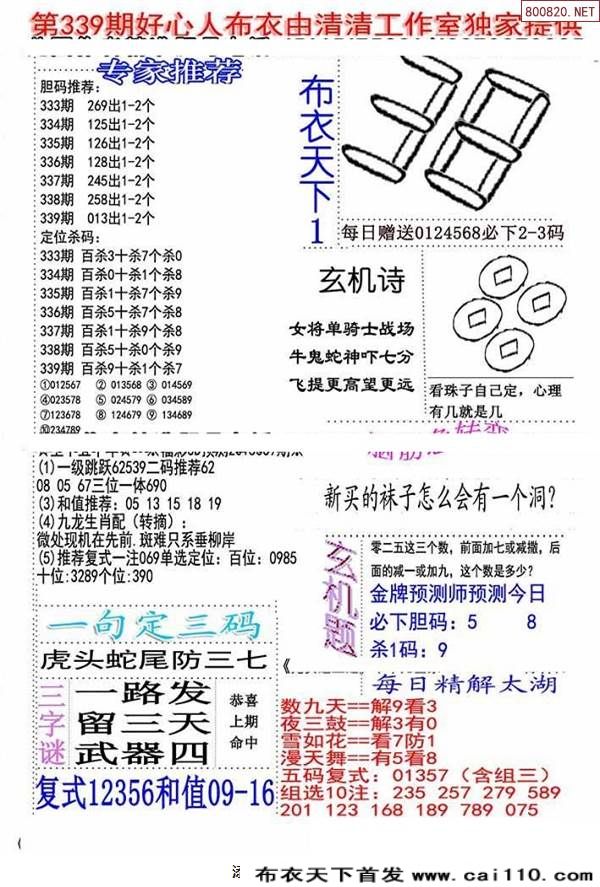 800820.NET
第339期好心人布衣由清清工作室独家提供
专家推荐
胆码推荐:
333期 269出1-2个
334期 125出1-2个
335期 126出1-2个
336期 128出1-2个
337期 245出1-2个
338期 258出1-2个
339期 013出1-2个
定位杀码:
333期 百杀3十杀7个杀0
334期 百杀0十杀1个杀8
335期 百杀1十杀7个杀9
336期 百杀5十杀7个杀8
337期 百杀1十杀9个杀8
338期 百杀5十杀0个杀9
339期 百杀9十杀1个杀7
①012567 ② 013568 ③ 014569
④023578 ⑤ 024579 ⑥ 034589
⑦123678 ⑧ 124679 ⑨ 134689
⑩234789
布衣天下1
38
每日赠送0124568必下2-3码
玄机诗
女将单骑士战场
牛鬼蛇神吓七分
飞提更高望更远
看珠子自己定，心理
有几就是几
(1)一级跳跃62539二码推荐62
08 05 67三位一体690
(3)和值推荐: 05 13 15 18 19
(4)九龙生肖配（转摘）:
微处现机在先前.斑难只系垂柳岸
(5)推荐复式一注069单选定位: 百位: 0985
十位:3289个位:390
新买的袜子怎么会有一个洞?
玄机题
零二五这三个数，前面加七或减撒，后
面的减一或加九，这个数是多少？
金牌预测师预测今日
必下胆码: 5 8
杀1码: 9
一句定三码
虎头蛇尾防三七
三字谜
一路发
留三天
武器四
恭喜
上期
命中
复式12356和值09-16
《
每日精解太湖
数九天==解9看3
夜三鼓==解3有0
雪如花==看7防1
漫天舞==有5看8
五码复式: 01357（含组三）
组选10注: 235 257 279 589
201 123 168 189 789 075
布衣天下首发 www.cai110.com